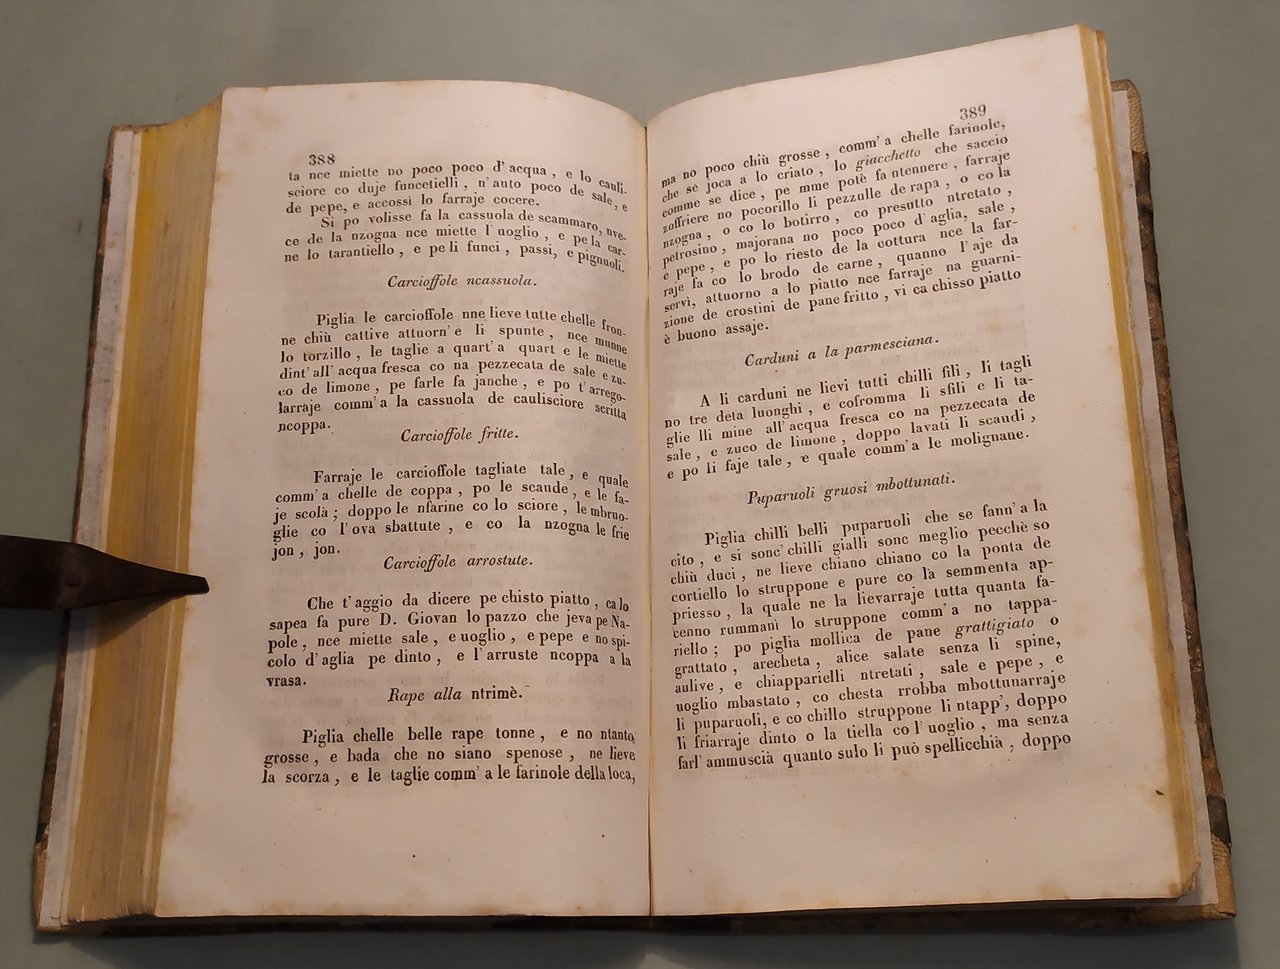 388
ta nce miette no poco poco d'acqua, e lo cauli-
sciore co duje funcetielli, n'auto poco de sale, e
de pepe, e accossì lo farraje cocere.
Si po volisse fa la cassuola de scammaro, nve-
ce de la nzogna nce miette l'uoglio, e pe la car-
ne lo tarantiello, e pe li funci, passi, e pignuoli.
Carcioffole ncassuola.
Piglia le carcioffole nne lieve tutte chelle fron-
ne chiù cattive attuorn'e li spunte, nce munne
lo torzillo, le taglie a quart'a quart e le miette
dint'all'acqua fresca co na pezzecata de sale e zu-
co de limone, pe farle fa janche, e po t'arrego-
larraje comm'a la cassuola de caulisciore scritta
ncoppa.
Carcioffole fritte.
Farraje le carcioffole tagliate tale, e quale
comm'a chelle de coppa, po le scaude, e le fa-
je scolà; doppo le nfarine co lo sciore, le mbruo-
glie co l'ova sbattute, e co la nzogna le frie
jon, jon.
Carcioffole arrostute.
Che t'aggio da dicere pe chisto piatto, ca lo
sapea fa pure D. Giovan lo pazzo che jeva pe Na-
pole, nce miette sale, e uoglio, e pepe e no spi-
colo d'aglia pe dinto, e l'arruste ncoppa a la
vrasa.
Rape alla ntrimè.
Piglia chelle belle rape tonne, e no ntanto
grosse, e bada che no siano spenose, ne lieve
la scorza, e le taglie comm'a le farinole della loca,
389
ma no poco chiù grosse, comm'a chelle farinole,
che se joca a lo criato, lo giacchetto che saccio
comme se dice, pe mme potè fa ntennere, farraje
zoffriere no pocorillo li pezzulle de rapa, o co la
nzogna, o co lo botirro, co presutto ntretato,
petrosino, majorana no poco poco d'aglia, sale,
e pepe, e po lo riesto de la cottura nce la far-
raje fa co lo brodo de carne, quanno l'aje da
servì, attuorno a lo piatto nce farraje na guarni-
zione de crostini de pane fritto, vi ca chisso piatto
è buono assaje.
Carduni a la parmesciana.
A li carduni ne lievi tutti chilli fili, li tagli
no tre deta luonghi, e cofromma li sfili e li ta-
glie lli mine all'acqua fresca co na pezzecata de
sale, e zuco de limone, doppo lavati li scaudi,
e po li faje tale, e quale comm'a le molignane.
Puparuoli gruosi mbottunati.
Piglia chilli belli puparuoli che se fann'a la
cito, e si sonc'chilli gialli sonc meglio pecchè so
chiù duci, ne lieve chiano chiano co la ponta de
cortiello lo struppone e pure co là semmenta ap-
priesso, la quale ne la lievarraje tutta quanta fa-
cenno rummanì lo struppone comm'a no tappa-
riello; po piglia mollica de pane grattigiato o
grattato, arecheta, alice salate senza li spine,
aulive, e chiapparielli ntretati, sale e pepe, e
uoglio mbastato, co chesta rrobba mbottunarraje
li puparuoli, e co chillo struppone li ntapp', doppo
li friarraje dinto o la tiella co l'uoglio, ma senza
farl'ammuscià quanto sulo li può spellicchià, doppo